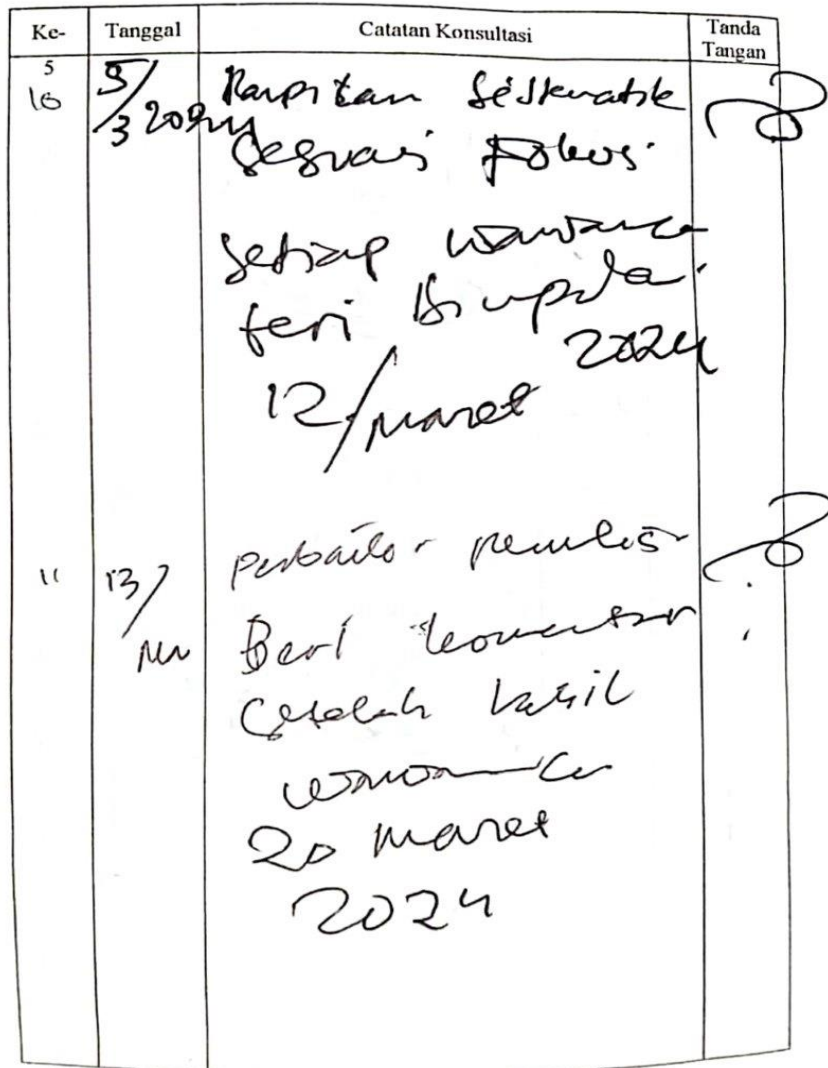 Ke- Tanggal Catatan Konsultasi Tanda Tangan
5
10 5/3 2024 Rapikan Sistematik
Sesuai Fokus
Setiap wawanca
beri
12/maret 2024
11 13/ penulis
Beri komentar
Setelah hasil
wawanca
20 maret
2024